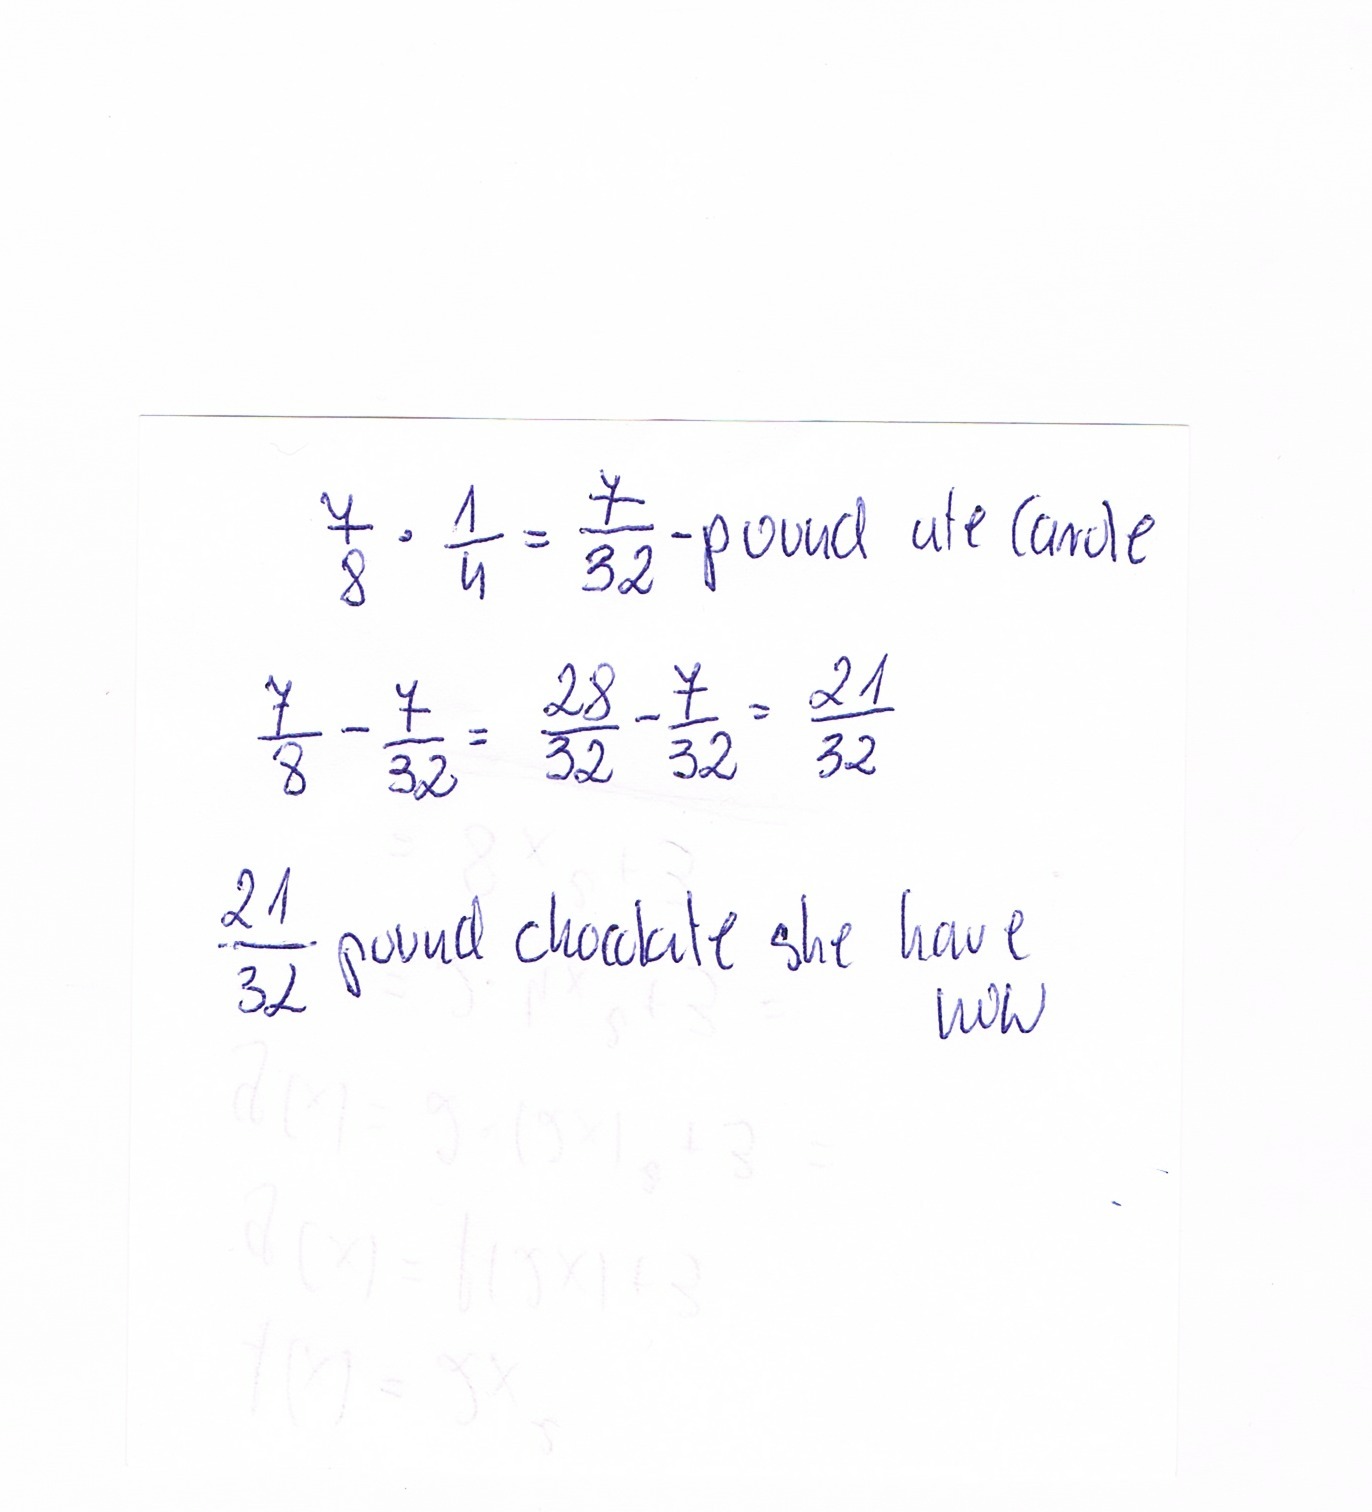 7/8 · 1/4 = 7/32 - pound ate Carole
7/8 - 7/32 = 28/32 - 7/32 = 21/32
21/32 pound chocolate she have
now